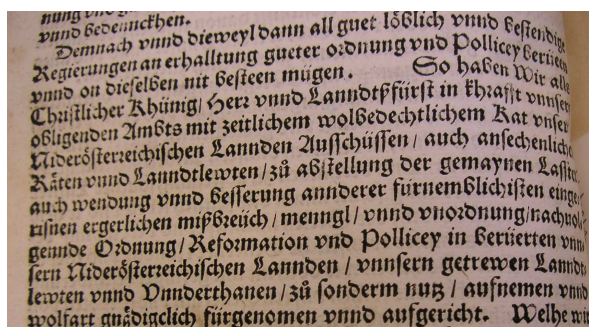 vnnd bedennckhen.
Demnach vnnd dieweyl dann all guet löblich vnnd bestendige
Regierungen an erhalltung gueter ordnung vnd Pollicey berüeen
vnnd on dieselben nit besteen mügen. So haben Wir als
Christlicher Khünig/ Herr vnnd Lanndtßfürst in khrafft vnnser
obligenden Ambts mit zeitlichem wolbedechtlichem Rat vnser
Niderösterreichischen Lannden Ausschüssen / auch ansechenliche
Räten vnnd Lanndtlewten / zů abstellung der gemaynen Lasster
auch wendung vnnd besserung annderer fürnemblichisten einge
rissnen ergerlichen mißbreüch / menngl / vnnd vnordnung / nachuol
gennde Ordnung / Reformation vnd Pollicey in berüerten vnn
sern Niderösterreichischen Lannden / vnnsern getrewen Lanndt
lewten vnnd Vnnderthanen / zů sonderm nutz / aufnemen vnnd
wolfart gnädigclich fürgenomen vnnd aufgericht. Welhe wir